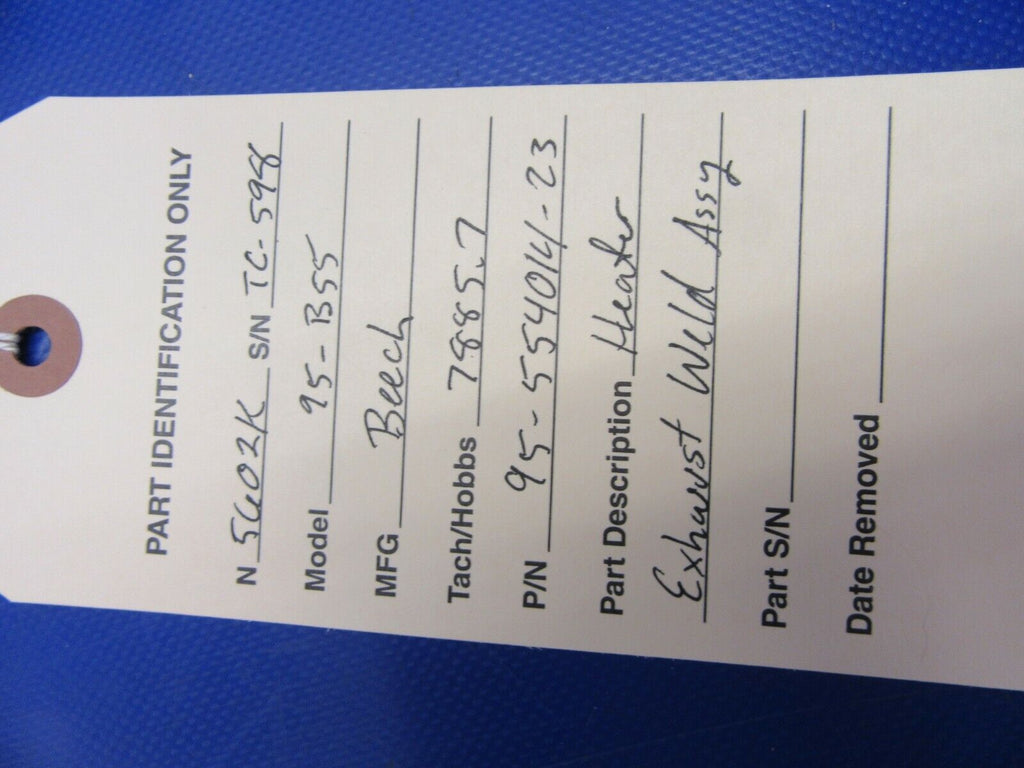 PART IDENTIFICATION ONLY
N 5602K S/N TC-598
Model 95-B55
MFG Beech
Tach/Hobbs 7885.7
P/N 95-554014-23
Part Description Heater
Exhaust Weld Assy
Part S/N
Date Removed